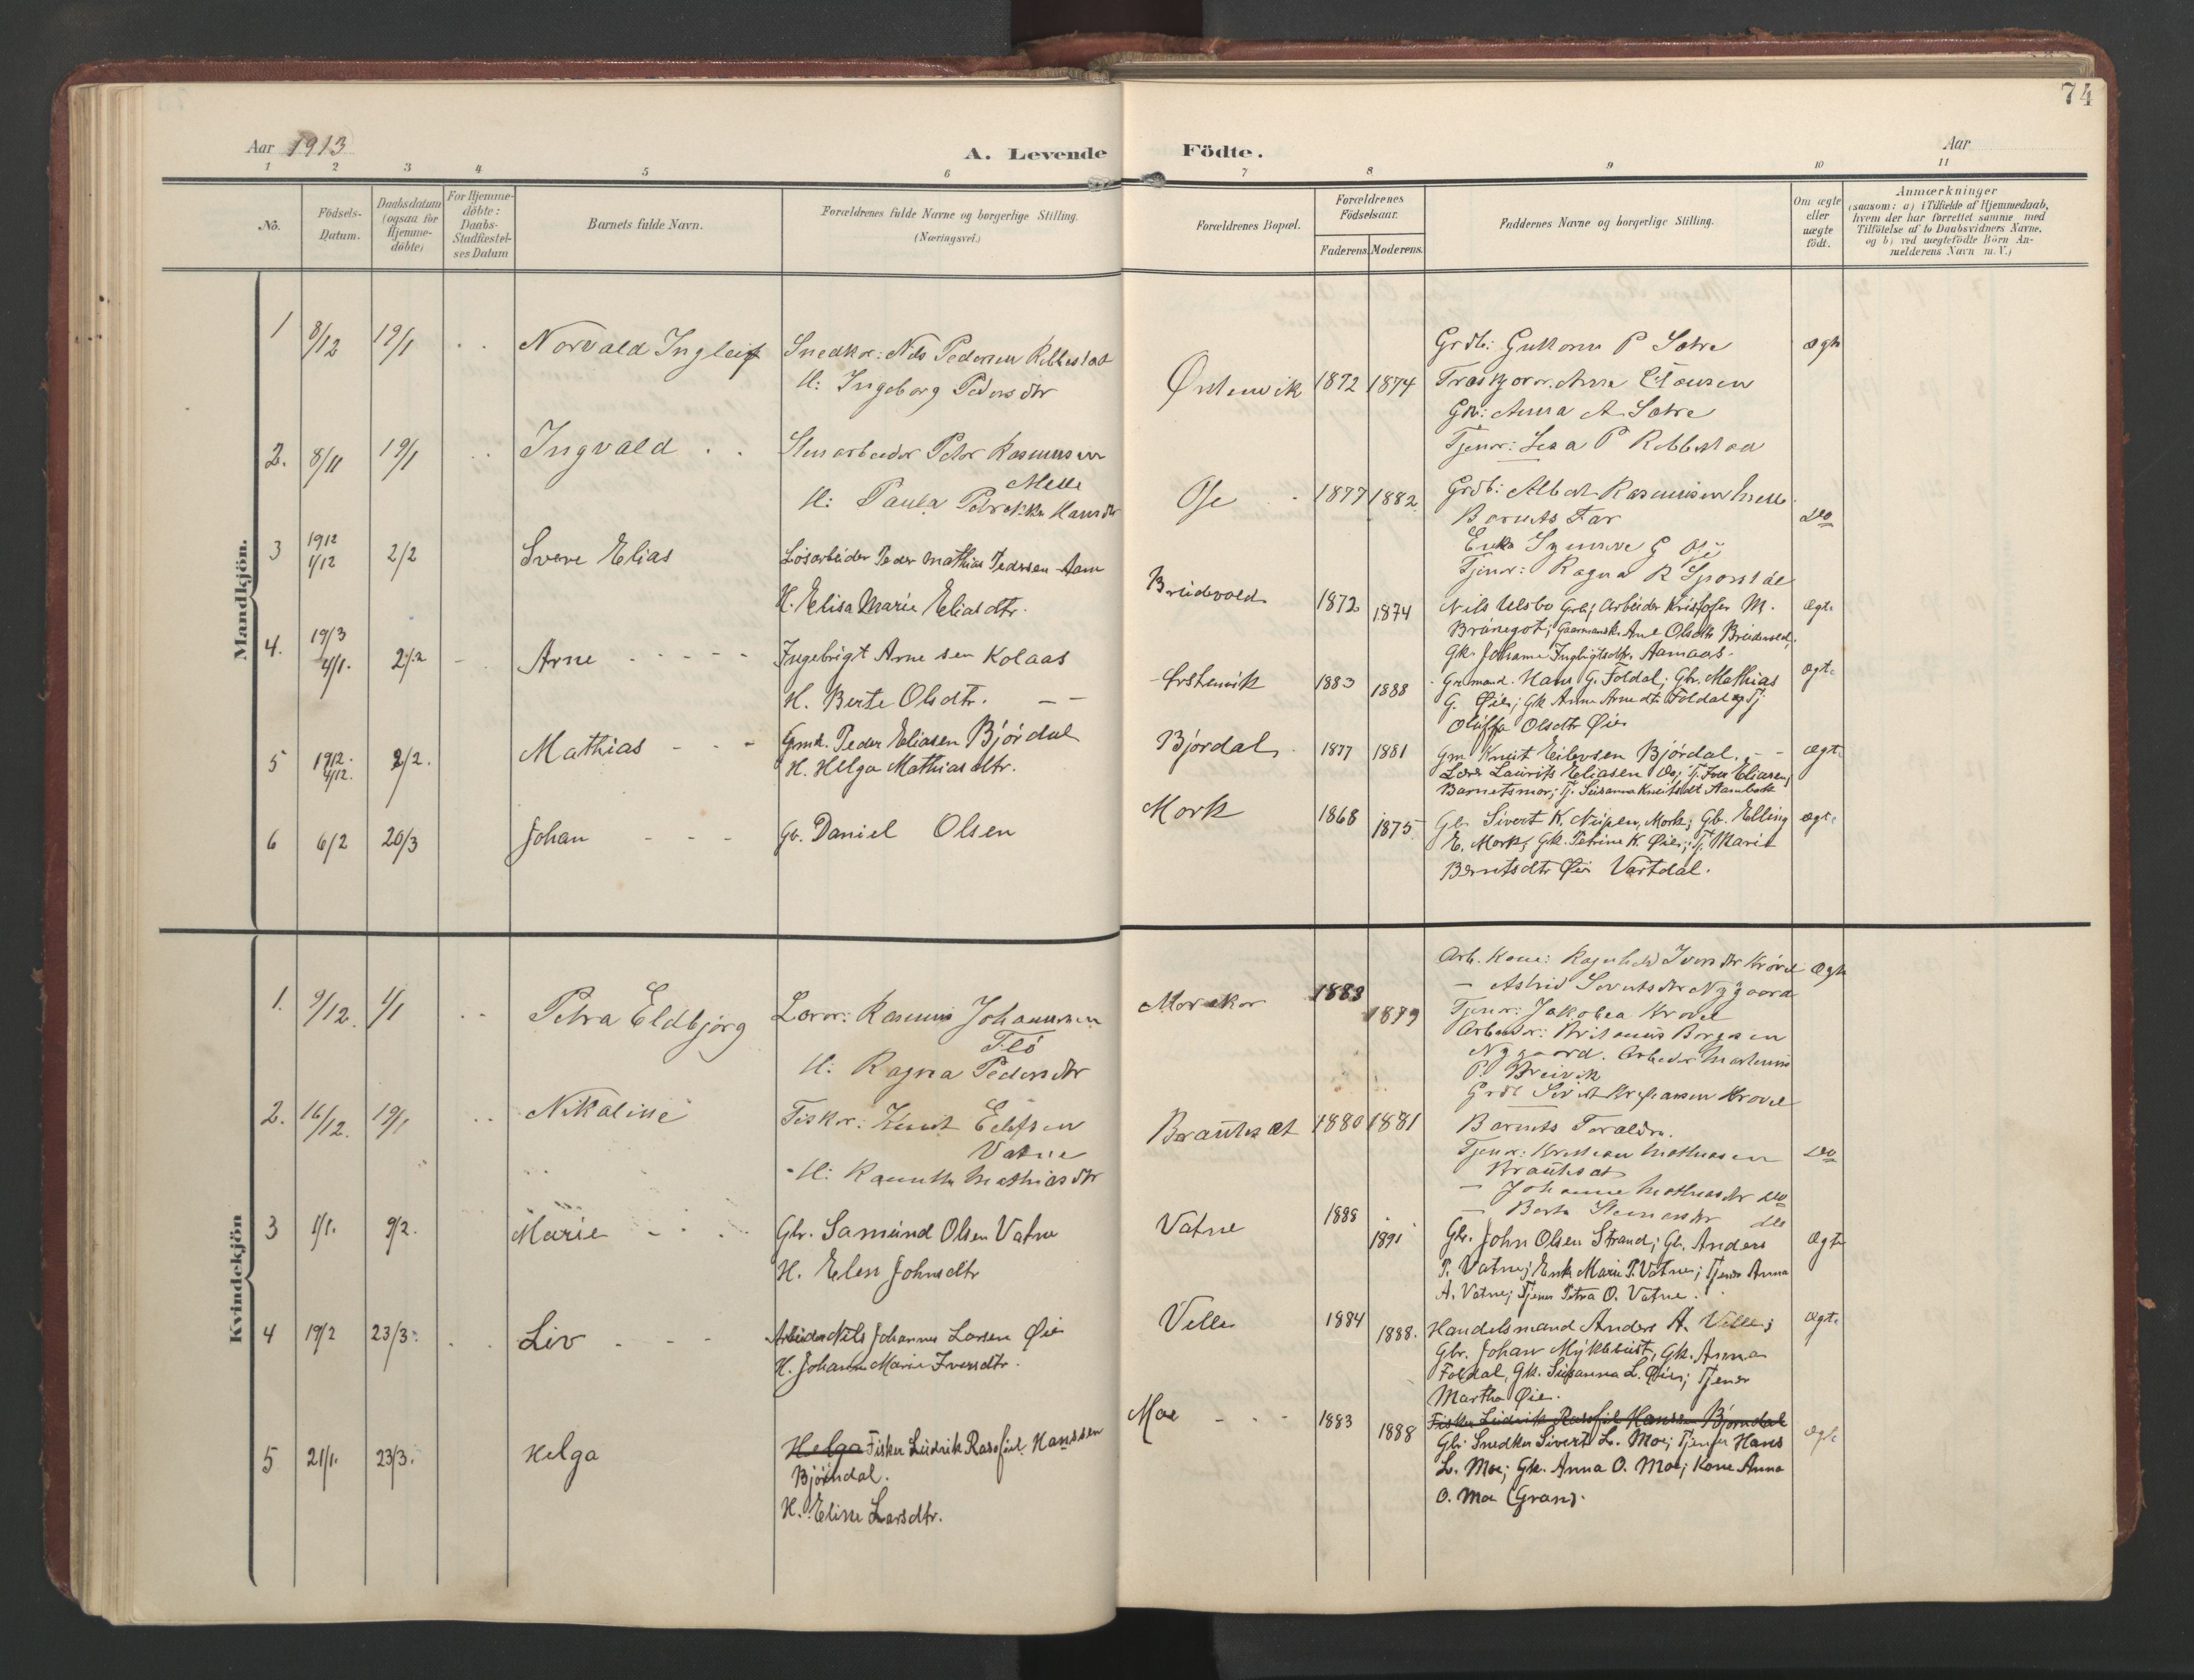 74
Aar 1913
A. Levende Födte.
Aar
1 2 3 4 5 6 7 8 9 10 11
No.
Födsels-
Datum.
Daabsdatum
(ogsaa for
Hjemme-
döbte)
For Hjemme-
döbte:
Daabs-
Stadfæstel-
ses Datum
Barnets fulde Navn.
Forældrenes fulde Navne og borgerlige Stilling.
(Næringsvei.)
Forældrenes Bopæl.
Forældrenes
Födselsaar.
Faderens. Moderens.
Faddernes Navne og borgerlige Stilling.
Om ægte
eller
uægte
födt.
Anmærkninger
(saasom: a) i Tilfælde af Hjemmedaab,
hvem der har forrettet samme med
Tilföielse af to Daabsvidners Navne,
og b) ved uægtefödte Börn An-
melderens Navn m. V.)
Mandkjön.
1 8/12 19/1 Norvald Ingleif
Snedker: Nils Pedersen Ribbestad
H: Ingeborg Pedersdtr
Ørstenvik 1872 1874
Grdb: Guttorm P Sætre
Anne Clausen
Gk: Anna A Sætre
Tjener: P Ribbestad
ægte
2. 8/11 19/1 Ingvald
Stenarbeider Peter Rasmussen
Melle
H: Paula Petrikke Hansdtr
Ose 1877 1882
Grdb: Albert Rasmussen Melle
Barnets Far
Enke G Ose
Tjener: Ragna R
Do
3 1912 1/12 2/2 Svere Elias
Løsarbeider Peder Mathias Pedersen Aam
H. Elisa Marie Eliasdtr.
Breidvold 1872 1874
Nils Ulsbø Grb; Arbeider Kristofer M.
Brünegot; Gaarmansk. Ane Olsdtr Breidvold;
Gk. Johanne Aamaas.
ægte
4. 1913 4/1. 2/2 Arne
Ingebrigt Arnesen Kolaas
H. Berte Olsdtr.
Ørstenvik 1883 1888
Grmand. Hans G. Foldal; Gbr. Mathias
G. Øie; Gk Anne Arnedtr Foldal og Tj
Oluffa Olsdtr Øie
ægte
5 1912. 4/12. 2/2. Mathias
Grmd. Peder Eliasen Bjørdal
H. Helga Mathiasdtr.
Bjørdal 1877 1881
Gm Knut Eilevsen Bjørdal.
Lærer Laurits Eliasen Os; Tj. Iver Eliasen;
Barnetsmor; Tj. Susanna Knutsdt Aambak
ægte
6 6/2 20/3 Johan
Gb. Daniel Olsen
Mork 1868 1875
Gb. Sivert K. Nupen, Mork; Gb. Elling
E. Mork; Gk. Petrine K. Øie; Tj. Marie
Berntsdtr Øie Vartdal.
ægte
Kvindekjön
1. 9/12. 1/1 Petra Eldbjørg
Lærer: Rasmus Johannesen
Flø
H: Ragna Pedersdtr
1883 1879
Arb. Kone: Ragnhild Iversdtr Krøvel
— Astrid Sivertsdtr Nygaard
Tjener: Jakobea Krøvel
Nygaard. Arbeider Martinus
P. Breivik
Grdb Sivert Kristiansen Krøvel
ægte
2. 16/12. 19/1 Nikaline
Fisker: Knut Eilefsen
Vatne
H: Mathiasdtr
1880 1881
Barnets Forældre.
Tjener: Kristian Mathiasen
— Johanne Mathiasdtr do
— Berte do
Do
3 1/1. 9/2. Marie
Gbr. Samund Olsen Vatne
H. Elen Johnsdtr
Vatne 1888 1891
Gbr. John Olsen Strand; Gb. Anders
P. Vatne; Enk Marie P. Vatne; Tjener Anna
A. Vatne; Tjener Petra O. Vatne.
ægte
4 19/2 23/3. Liv
Arbeider Nils Johannes Larsen Øie
H. Johanne Marie Iversdtr.
Velle 1884 1888.
Handelsmand Anders A. Velle;
Gbr. Johan Myklebust, Gk. Anna
Foldal, Gk. Susanna L. Øie; Tjener
Martha Øie.
ægte
5 21/1. 23/3. Helga
Helga Fisker Ludvik Rasfjel Hanssen
Bjørndal.
H. Elise Larsdtr.
Moe 1883 1888
Fisker Ludvik Rasfjel Hanssen Bjørndal
Gb: Snedker Sivert L. Moe; Tjener Hans
L. Moe; Gk. Anna O. Moe; Kone Anna
O. Moe (Gran).
ægte